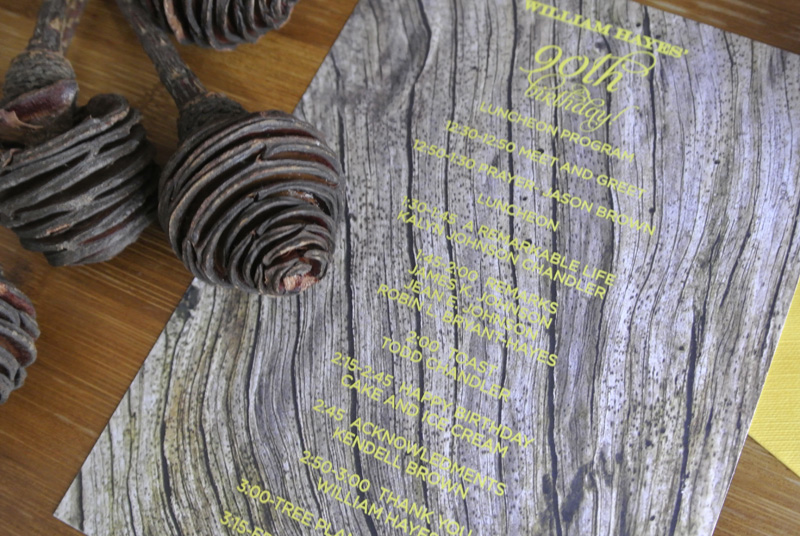 WILLIAM HAYES'
90th
birthday!
LUNCHEON PROGRAM
12:30-12:50 MEET AND GREET
12:50-1:30 PRAYER: JASON BROWN
LUNCHEON
1:30-1:45 A REMARKABLE LIFE
KALYN JOHNSON CHANDLER
1:45-2:00 REMARKS
JAMES K. JOHNSON
JEAN E. JOHNSON
ROBIN L. BRYANT-HAYES
2:00 TOAST
TODD CHANDLER
2:15-2:45 HAPPY BIRTHDAY
CAKE AND ICE CREAM
2:45 ACKNOWLEDMENTS
KENDELL BROWN
2:50-3:00 THANK YOU
WILLIAM HAYES
3:00-TREE
3:15-